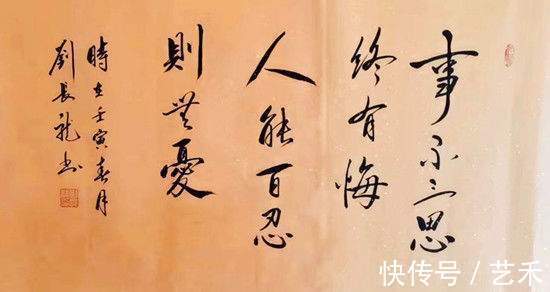 事不三思
终有悔
人能百忍
则無憂
時在壬寅春月
劉長龍书
快传号／艺禾